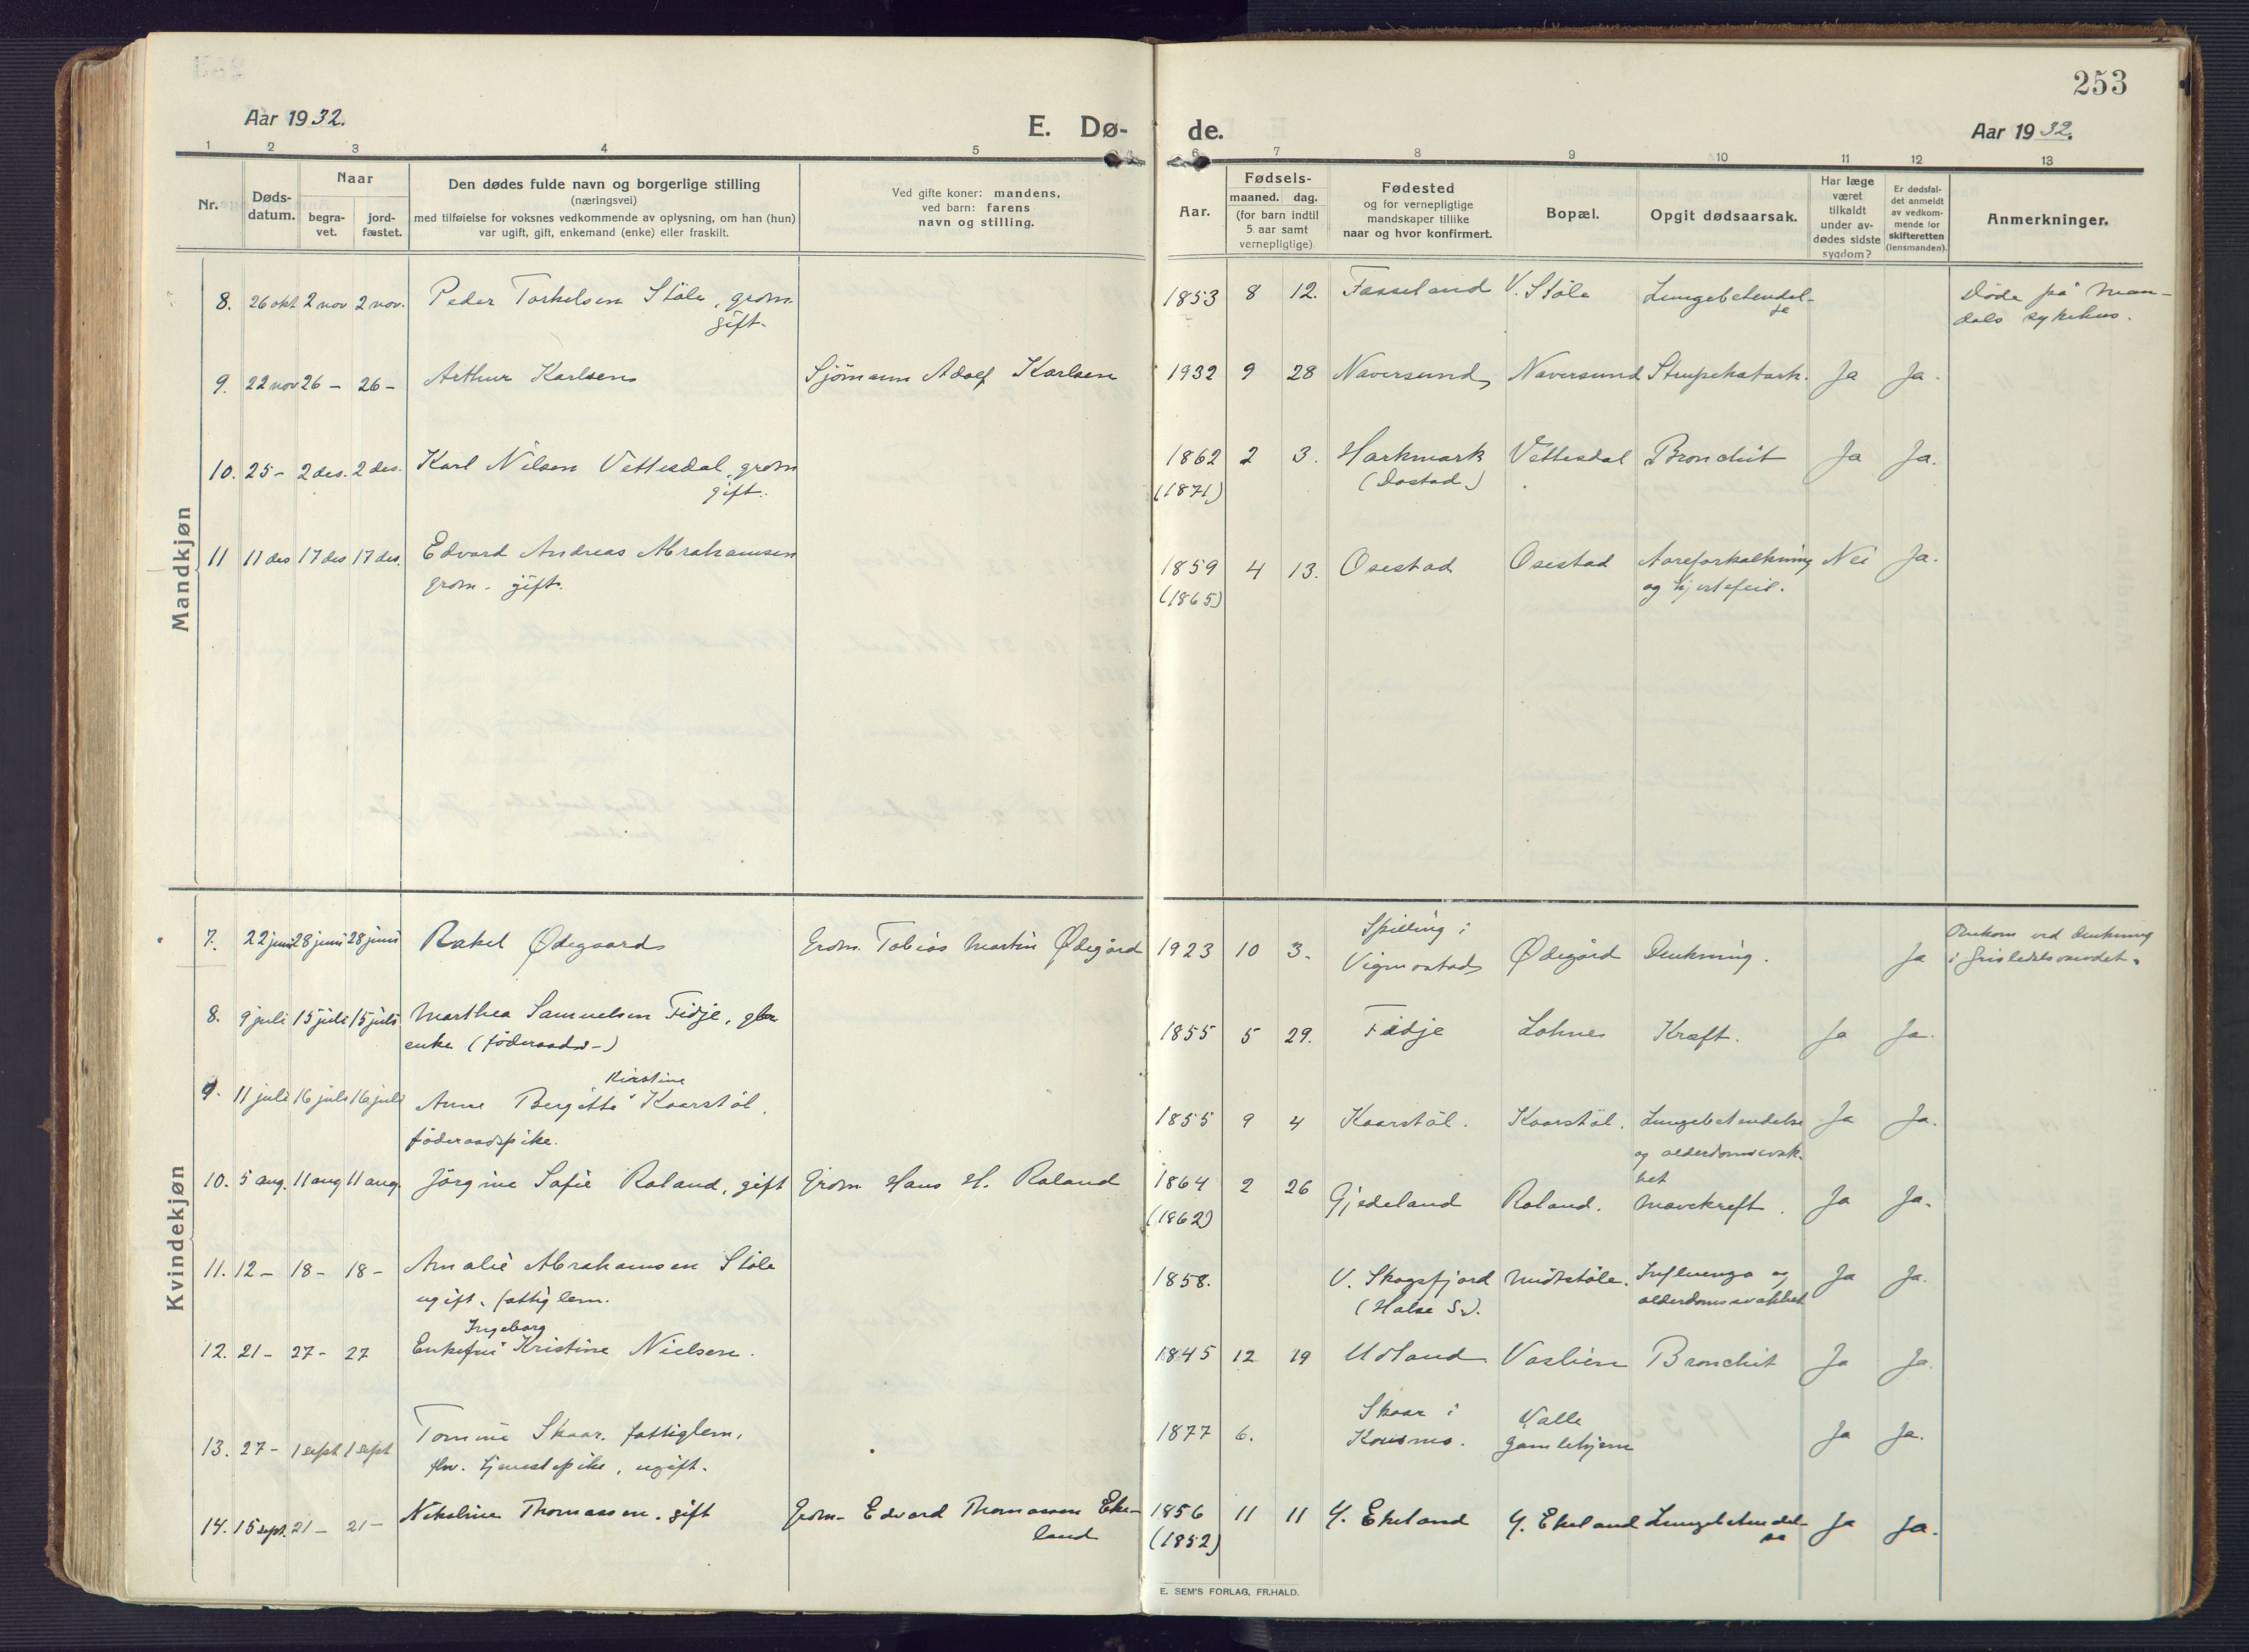 253
Aar 1932.
E. Dø- de.
Aar 1932.
1 2 3 4 5 6 7 8 9 10 11 12 13
Nr.
Døds-
datum.
Naar
begra-
vet.
jord-
fæstet.
Den dødes fulde navn og borgerlige stilling
(næringsvei)
med tilføielse for voksnes vedkommende av oplysning, om han (hun)
var ugift, gift, enkemand (enke) eller fraskilt.
Ved gifte koner: mandens,
ved barn: farens
navn og stilling.
Aar.
Fødsels-
maaned. dag.
(for barn indtil
5 aar samt
vernepligtige)
Fødested
og for vernepligtige
mandskaper tillike
naar og hvor konfirmert.
Bopæl.
Opgit dødsaarsak.
Har læge
været
tilkaldt
under av-
dødes sidste
sygdom?
Er dødsfal-
det anmeldt
av vedkom-
mende for
skifteretten
(lensmanden).
Anmerkninger.
Mandkjøn
8. 26 okt 2 nov 2 nov. Peder Torkelsen Støle, grdm. 1853 8 12. Fasseland V. Støle Lungebetendel- Døde på Man-
gift. se dals sykehus.
9. 22 nov 26 - 26 - Arthur Karlsen Sjømann Adolf Karlsen 1932 9 28 Naversund Naversund Strupekatarh. Ja Ja.
10. 25 - 2 des. 2 des. Karl Nilsen Vettesdal, grdm 1862 2 3. Harkmark Vettesdal Bronchit Ja Ja.
gift. (1871) (Dostad)
11 11 des 17 des 17 des. Edvard Andreas Abrahamsen 1859 4 13. Osestad Osestad Aareforkalkning Nei Ja.
grdm. gift. (1865) og hjertefeil.
Kvindekjøn
7. 22 juni 28 juni 28 juni Rakel Ødegaard Grdm. Tobias Martin Ødegård 1923 10 3. Spilling i Vigmostad Ødegård Drukning. Ja Omkom ved drukning
i vandet.
8. 9 juli 15 juli 15 juli Marthea Samuelsen Fidje, 1855 5 29. Fidje Lohne Kræft. Ja Ja.
enke (føderaads-)
Kirstine
9. 11 juli 16 juli 16 juli Anne Bergitte Kaarstøl, 1855 9 4 Kaarstøl. Kaarstøl. Lungebetendelse Ja Ja.
føderaadspike. og alderdomssvak-
het
10. 5 aug. 11 aug 11 aug. Jørgine Sofie Roland, gift Grdm. Hans H. Roland 1864 2 26 Gjedeland Roland. Mavekreft. Ja Ja.
(1862)
11. 12 - 18 - 18 - Amalie Abrahamsen Støle 1858. V. Skogsfjord Midtstøle. Influenza og Ja Ja.
ugift. fattiglem. (Halse S.). alderdomssvakhet
Ingeborg
12. 21 - 27 - 27 Enkefru Kristine Nielsen. 1845 12 19 Udland Voslien Bronchit Ja Ja.
13. 27 - 1 sept 1 sept Tomine Skaar. fattiglem, 1877 6. Skaar i Valle Ja Ja.
fhv. tjenestepike, ugift. Konsmo. gamlehjem
14. 15 sept. 21 - 21 - Nikoline Thomassen. gift Grdm. Edvard Thomassen Eke- 1856 11 11 Y. Ekeland Y. Ekeland Lungebetendel- Ja Ja.
land (1852) se
E. SEM'S FORLAG, FR.HALD.